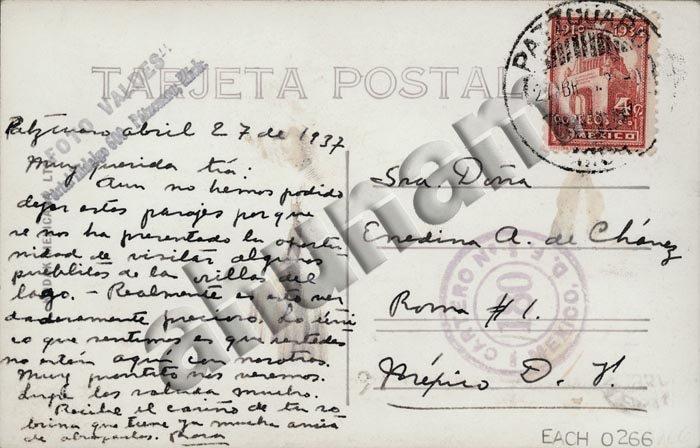 TARJETA POSTAL
"FOTO VALDES"
Pátzcuaro, Mich.
Patzcuaro abril 27 de 1937
Muy querida tía:
Aun no hemos podido
dejar estos parajes porque
se nos ha presentado la oportu
nidad de visitar algunos
pueblitos de la orilla del
lago. - Realmente es esto ver
daderamente precioso. Lo úni
co que sentimos es que ustedes
no estén aquí con nosotros.
Muy prontito nos veremos.
Lupe los saluda mucho.
Recibe el cariño de tu so
brina que tiene ya mucha ansia
de abrazarlos. Rosa
Sra. Doña
Enedina A. de Chávez
Roma #1.
México D. F.
PATZCUARO
1936
4c
CORREOS
MEXICO
CARTERO No
180
MEXICO, D. F.
ahunan
EACH 0266